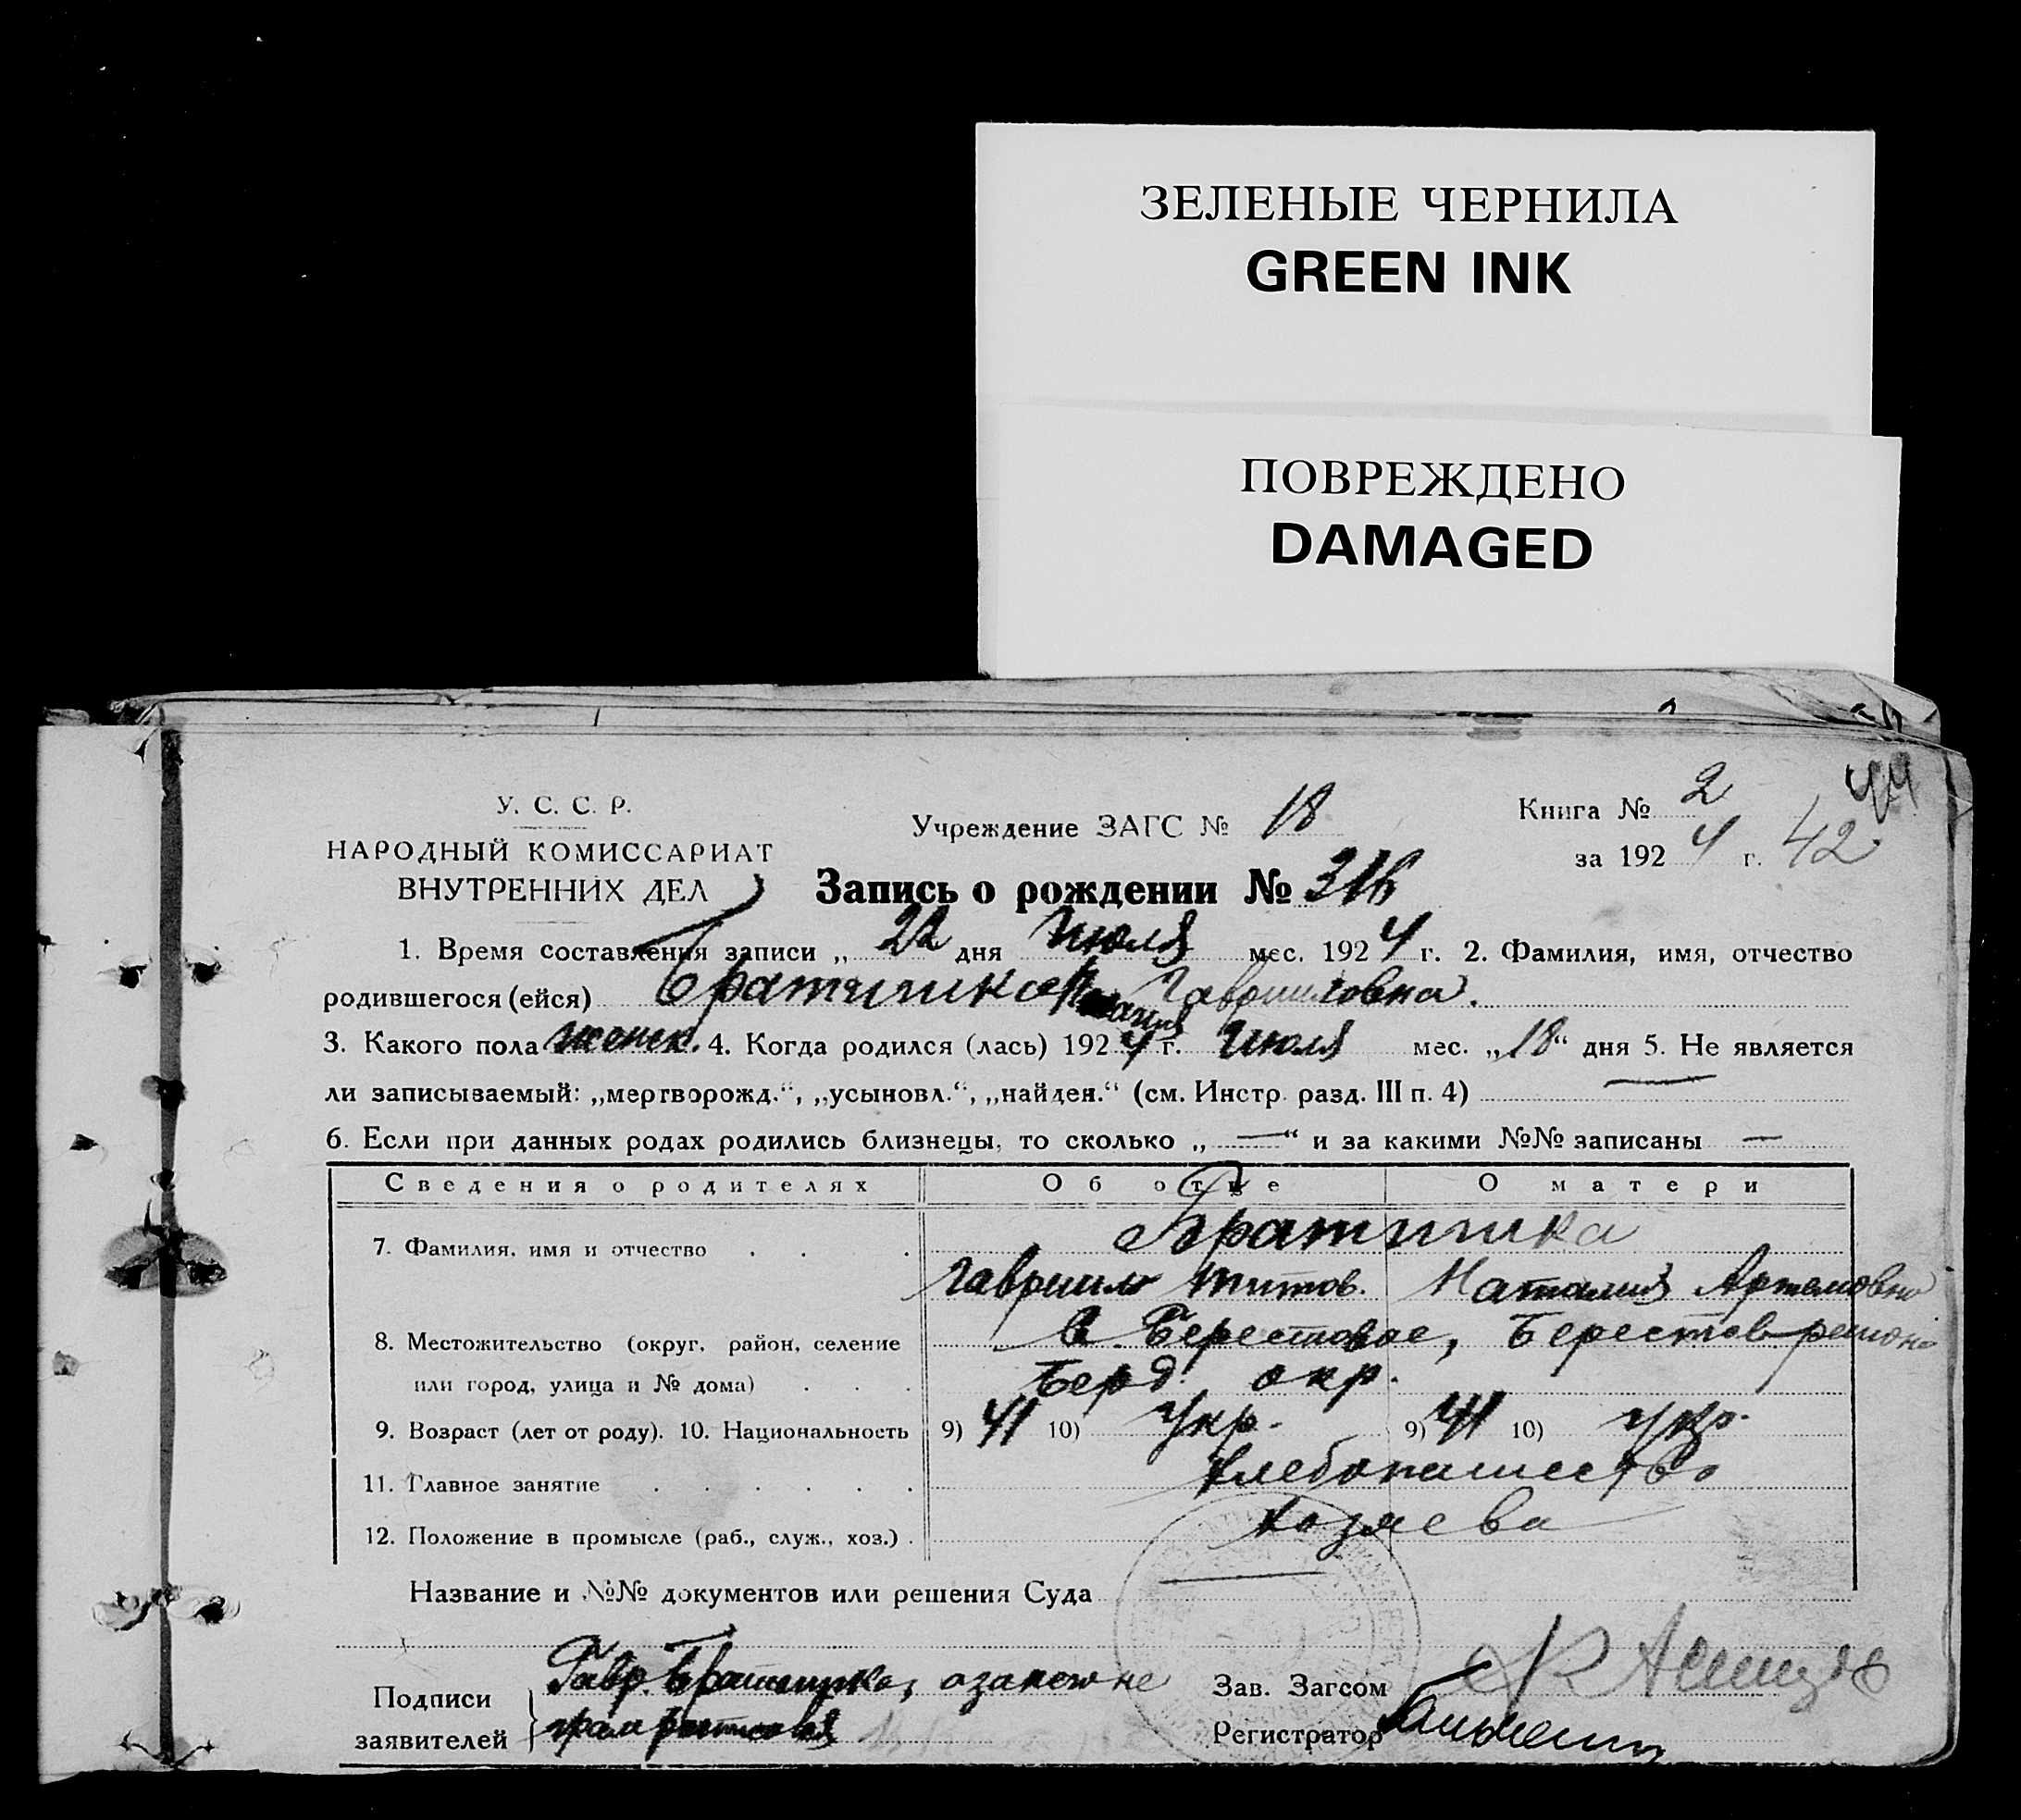 ЗЕЛЕНЫЕ ЧЕРНИЛА
GREEN INK
ПОВРЕЖДЕНО
DAMAGED
44
У. С. С. Р.
НАРОДНЫЙ КОМИССАРИАТ
ВНУТРЕННИХ ДЕЛ
Учреждение ЗАГС № 18
Книга № 2
за 1924 г. 42
Запись о рождении № 316
1. Время составления записи „ 22 дня Июля мес. 1924 г. 2. Фамилия, имя, отчество
родившегося (ейся) Гавриловна.
3. Какого пола женск. 4. Когда родился (лась) 1924 г. Июля мес. „18“ дня 5. Не является
ли записываемый: „мертворожд.“, „усыновл.“, „найден.“ (см. Инстр. разд. III п. 4) —
6. Если при данных родах родились близнецы, то сколько „ — “ и за какими №№ записаны —
Сведения о родителях Об отце О матери
7. Фамилия, имя и отчество . . .
Гавриил Титов. Наталия Артемовна
8. Местожительство (округ, район, селение с. Берестовое, Берестов района
или город, улица и № дома) . . . Берд. окр.
9. Возраст (лет от роду). 10. Национальность 9) 41 10) Укр. 9) 41 10) укр.
11. Главное занятие . . . . . . хлебопашество
12. Положение в промысле (раб., служ., хоз.) . хозяева
Название и №№ документов или решения Суда —
Подписи
заявителей
Гавр.
Зав. Загсом
Регистратор